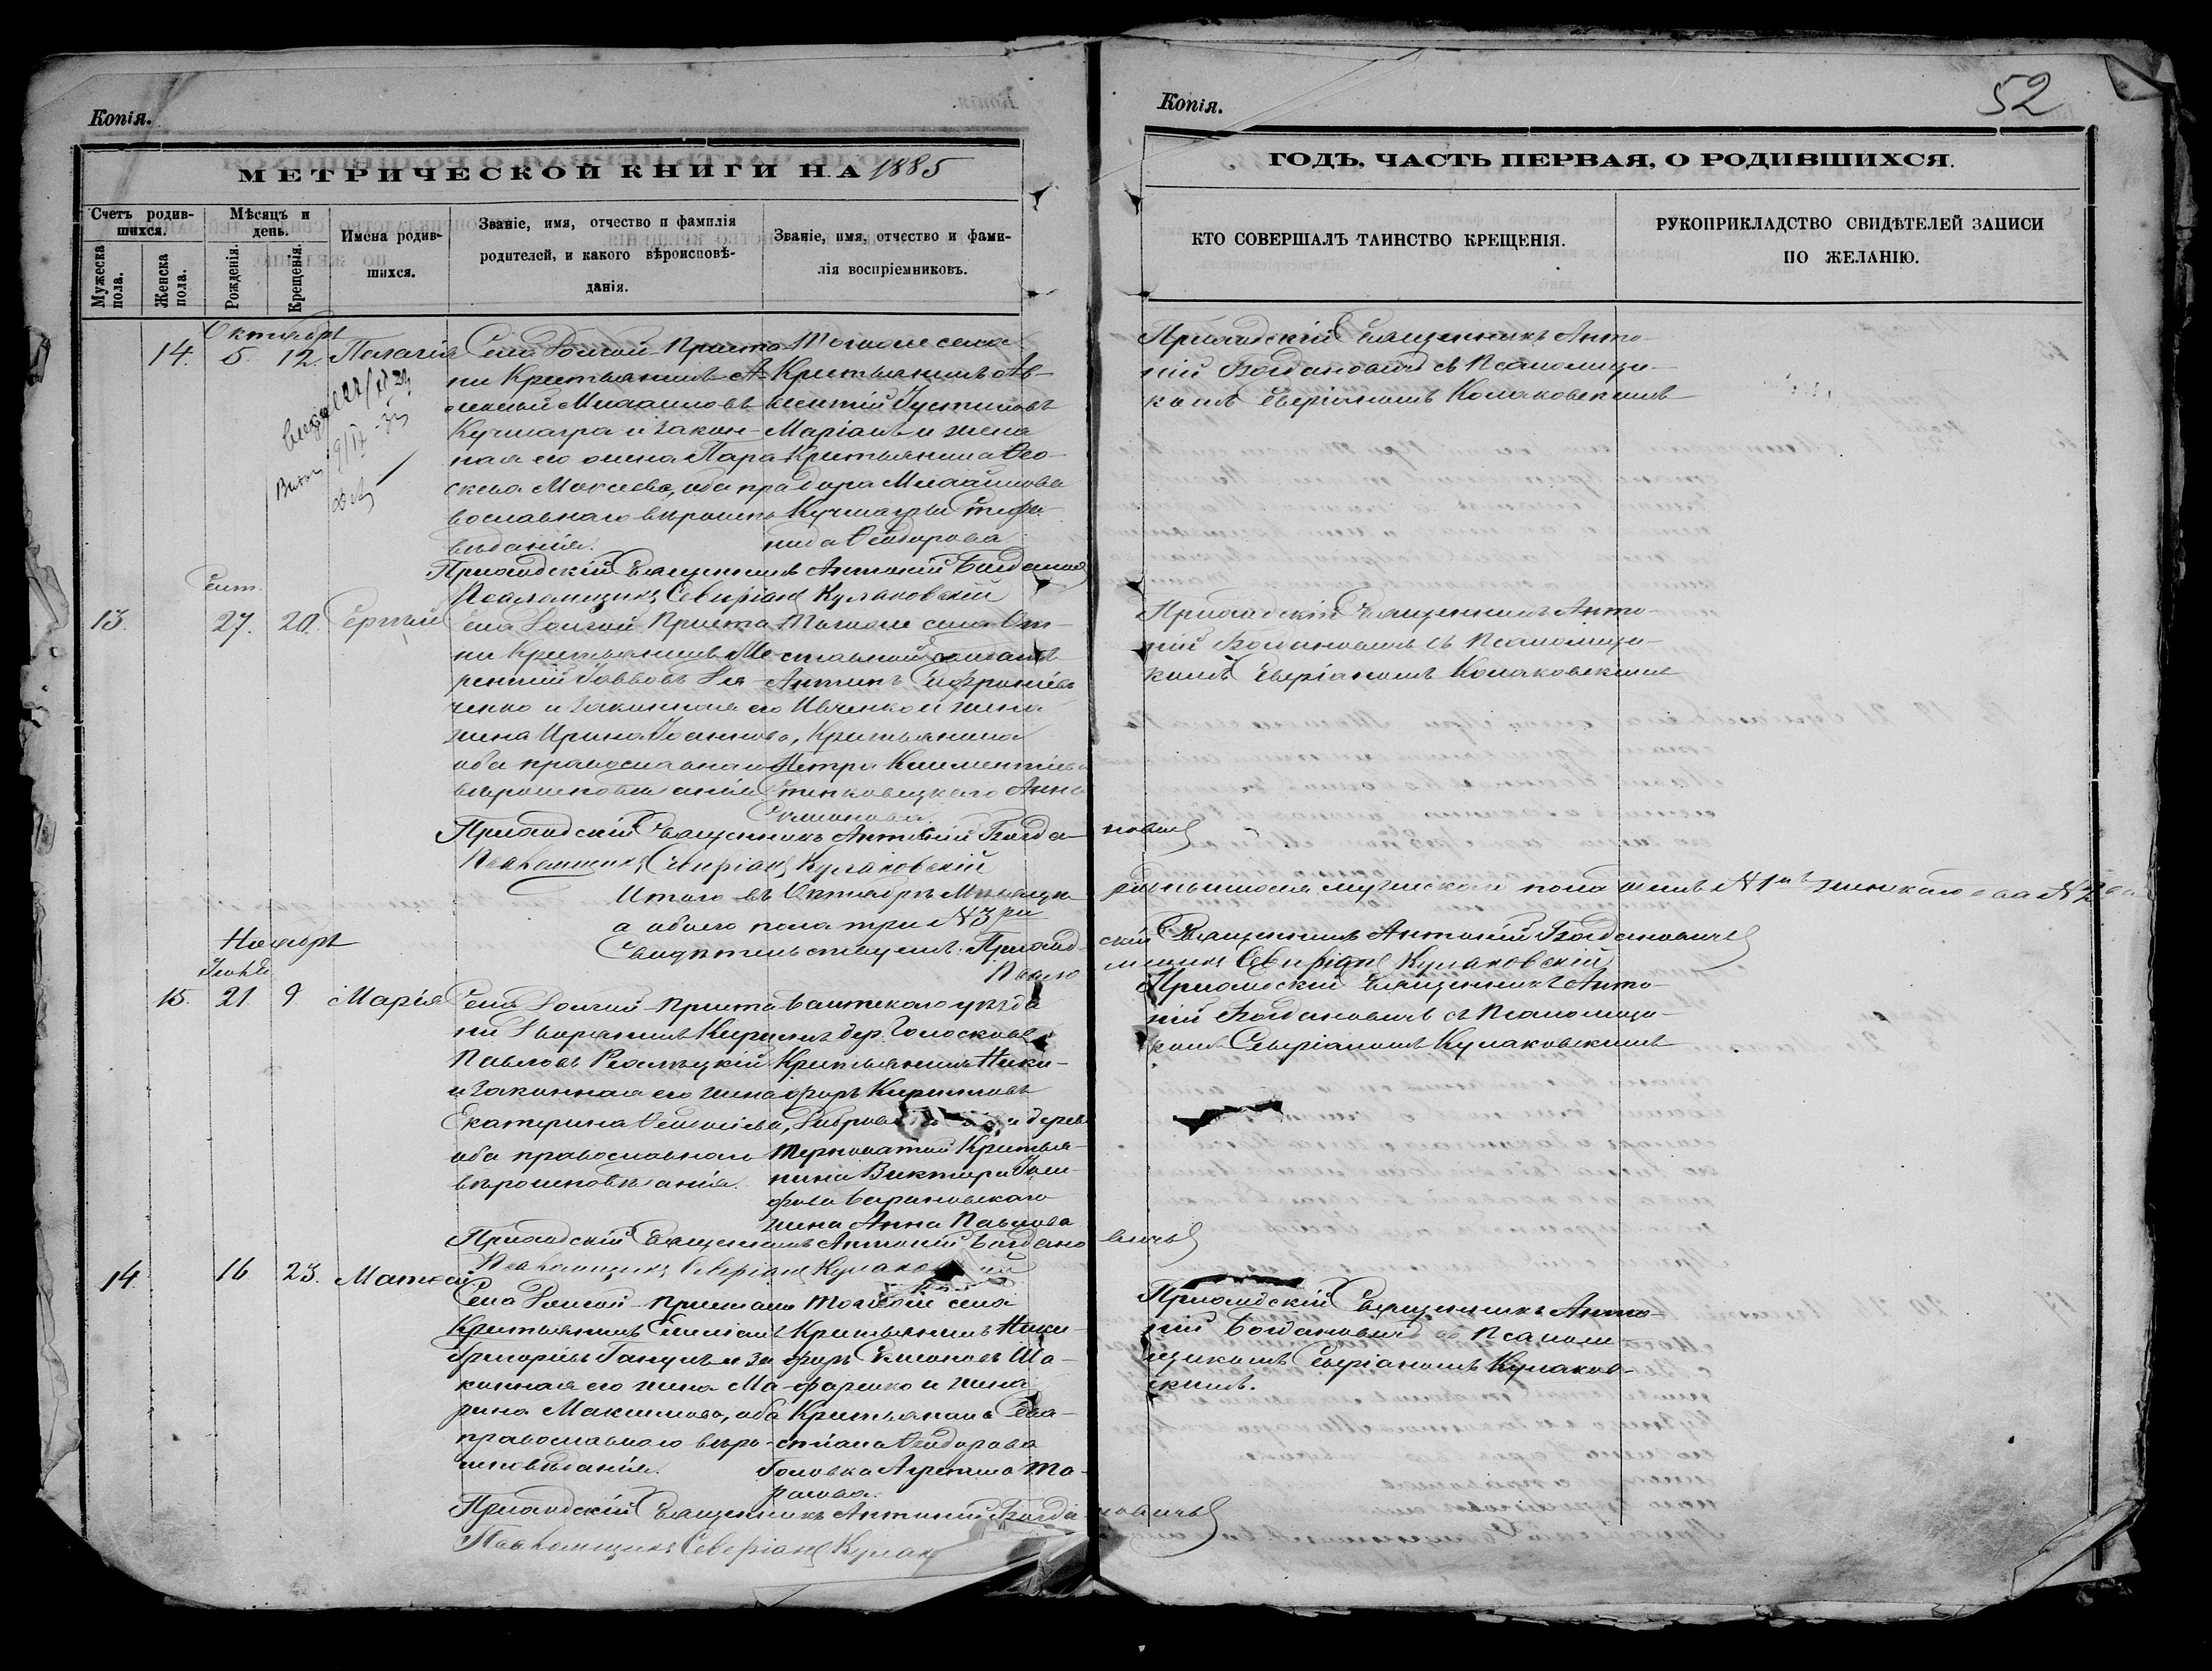 Копія.
МЕТРИЧЕСКОЙ КНИГИ НА 1885
Счетъ родив-
шихся.
Мужеска
пола.
Женска
пола.
Мѣсяцъ и
день.
Рожденія.
Крещенія.
Имена родив-
шихся.
Званіе, имя, отчество и фамилія
родителей, и какого вѣроисповѣ-
данія.
Званіе, имя, отчество и фами-
лія воспріемниковъ.
Октябрь
14. 5. 12. Пелагія
Села Долгой-Приста-
ни Крестьянинъ
Михаиловъ
Кучмагра и закон-
ная его жена Пара-
скева Моисеева, оба пра-
вославнаго вѣроиспо-
вѣданія.
Тогоже села
Крестьянинъ Ав-
ксентій Густиновъ
Маріанъ и жена
Крестьянина Ѳео-
дора Михаилова
Кучмагры Стефа-
нида Ѳеодорова
Приходскій Священникъ Антоній Богданович
Псаломщикъ Северіанъ Кулаковскій
Сент.
13. 27. 20. Сергій
Села Долгой Приста-
ни Крестьянинъ
Іаввовъ
и законная его
жена Ирина Іоаннова,
оба православнаго
вѣроисповѣданія
Тогоже села От-
ставной солдатъ
Антипъ Софроніевъ
Ивченко и жена
Крестьянина
Петра Климентіева
Анна
Симонова.
Приходскій Священникъ Антоній Богда-
Псаломщикъ Северіанъ Кулаковскій
Итого въ Октябрѣ Мѣсяцѣ
а обоего пола три №3 ри
Свидѣтельствуемъ: Приход-
Псало
Ноябрь
15. 21. 9. Марія
Села Долгой-Приста-
ни Дворянинъ Кириллъ
Павловъ
и законная его жена
Екатерина
оба православнаго
вѣроисповѣданія.
Балтскаго уѣзда
дер. Голоскова
Крестьянинъ Ники-
форъ Кирилловъ
и дерев
Терноватой Крестья-
нина Виктора Іоси-
фова Барановскаго
жена Анна Павлова
Приходскій Священникъ Антоній Богдано
Псаломщикъ Северіанъ
14. 16. 23. Матѳей
Села Долгой-Пристани
Крестьянинъ
Григоріевъ и за-
конная его жена Ма-
рина Максимова, оба
православнаго вѣро-
исповѣданія.
Тогоже села
Крестьянинъ Ники-
форъ Симоновъ Ша-
фаренко и жена
Крестьянина Сева-
стіана Ѳеодорова
Головка Агрепина Та-
расова.
Приходскій Священникъ Антоній Богда-
Псаломщикъ Северіанъ Кулак
Копія.
52
ГОДЪ, ЧАСТЬ ПЕРВАЯ, О РОДИВШИХСЯ.
КТО СОВЕРШАЛЪ ТАИНСТВО КРЕЩЕНІЯ.
РУКОПРИКЛАДСТВО СВИДѢТЕЛЕЙ ЗАПИСИ
ПО ЖЕЛАНІЮ.
Приходскій Священникъ Анто-
ній Богдановичъ съ Псаломщи-
комъ Северіаномъ Кулаковскимъ
Приходскій Священникъ Анто-
ній Богдановичъ съ Псаломщи-
комъ Северіаномъ Кулаковскимъ
новичъ
родившихся мужескаго пола одинъ №1нъ женскаго два №2ва
скій Священникъ Антоній Богдановичъ
мщикъ Северіанъ Кулаковскій
Приходскій Священникъ Анто-
ній Богдановичъ съ Псаломщи-
комъ Северіаномъ Кулаковскимъ
вичъ
Приходскій Священникъ Анто-
ній Богдановичъ съ Псалом
щикомъ Северіаномъ Кулаков-
скимъ.
новичъ